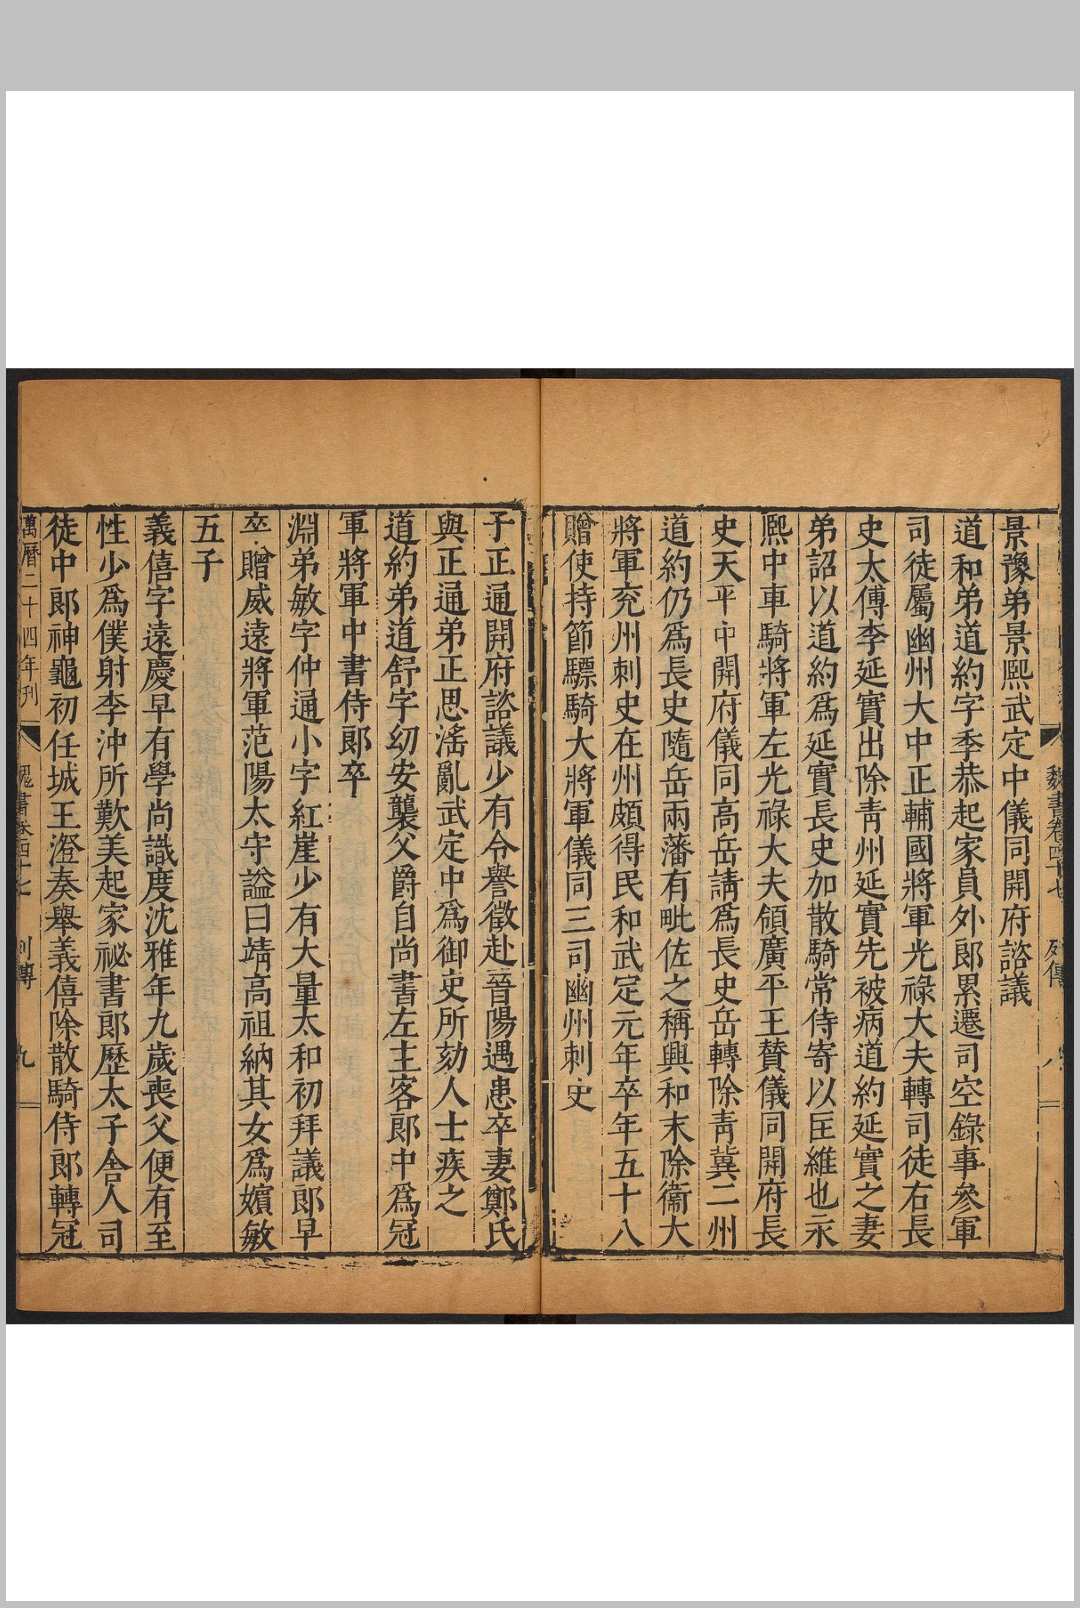 魏書卷四十七
列傳
八
景豫弟景熙武定中儀同開府諮議
道和弟道約字季恭起家員外郎累遷司空錄事參軍
司徒屬幽州大中正輔國將軍光祿大夫轉司徒右長
史太傅李延實出除青州延實先被病道約延實之妻
弟詔以道約爲延實長史加散騎常侍寄以匡維也永
熙中車騎將軍左光祿大夫領廣平王贊儀同開府長
史天平中開府儀同高岳請爲長史岳轉除青冀二州
道約仍爲長史隨岳兩藩有毗佐之稱興和末除衞大
將軍兖州刺史在州頗得民和武定元年卒年五十八
贈使持節驃騎大將軍儀同三司幽州刺史
子正通開府諮議少有令譽徵赴晉陽遇患卒妻鄭氏
與正通弟正思滛亂武定中爲御史所劾人士疾之
道約弟道舒字幼安襲父爵自尚書左主客郎中爲冠
軍將軍中書侍郎卒
淵弟敏字仲通小字紅崖少有大量太和初拜議郎早
卒贈威遠將軍范陽太守謚曰靖高祖納其女爲嬪敏
五子
義僖字遠慶早有學尚識度沈雅年九歲喪父便有至
性少爲僕射李沖所歎美起家祕書郎歷太子舍人司
徒中郎神龜初任城王澄奏舉義僖除散騎侍郎轉冠
萬曆二十四年刊
魏書卷四十七
列傳
九